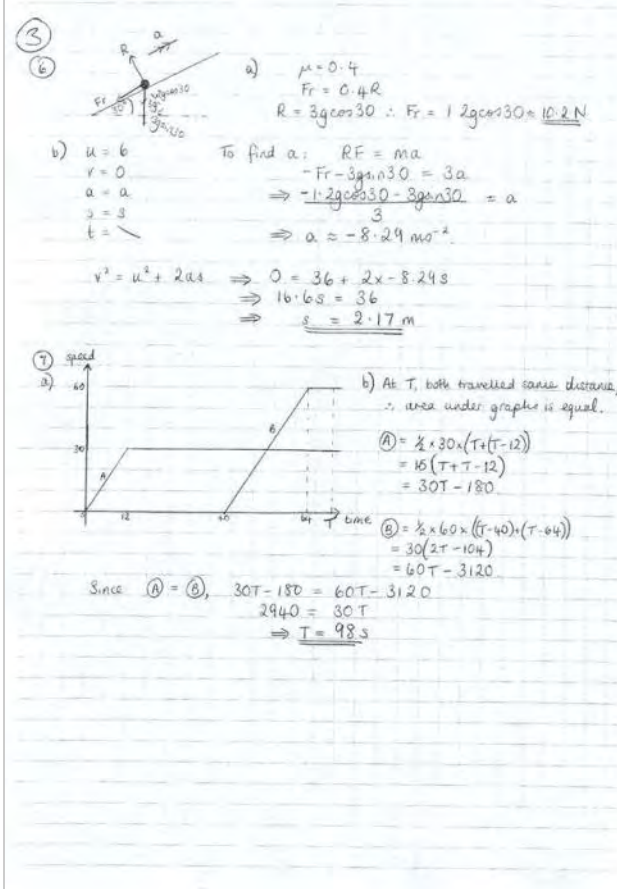 3
6
a
R
Fr
30°
3g
3gsin30
a) μ = 0.4
Fr = 0.4R
R = 3gcos30 ∴ Fr = 1.2gcos30 = 10.2 N
b) u = 6
v = 0
a = a
s = s
t =
To find a: RF = ma
-Fr - 3gsin30 = 3a
⇒ -1.2gcos30 - 3gsin30 = a
3
⇒ a ≈ -8.29 ms⁻²
v² = u² + 2as ⇒ 0 = 36 + 2x - 8.29s
⇒ 16.6s = 36
⇒ s = 2.17 m
7
a)
speed
60
30
A
B
0
12
40
64
T
time
b) At T, both travelled same distance,
∴ area under graphs is equal.
A = ½ × 30 × (T+(T-12))
= 15(T+T-12)
= 30T - 180
B = ½ × 60 × ((T-40)+(T-64))
= 30(2T - 104)
= 60T - 3120
Since A = B, 30T - 180 = 60T - 3120
2940 = 30T
⇒ T = 98 s